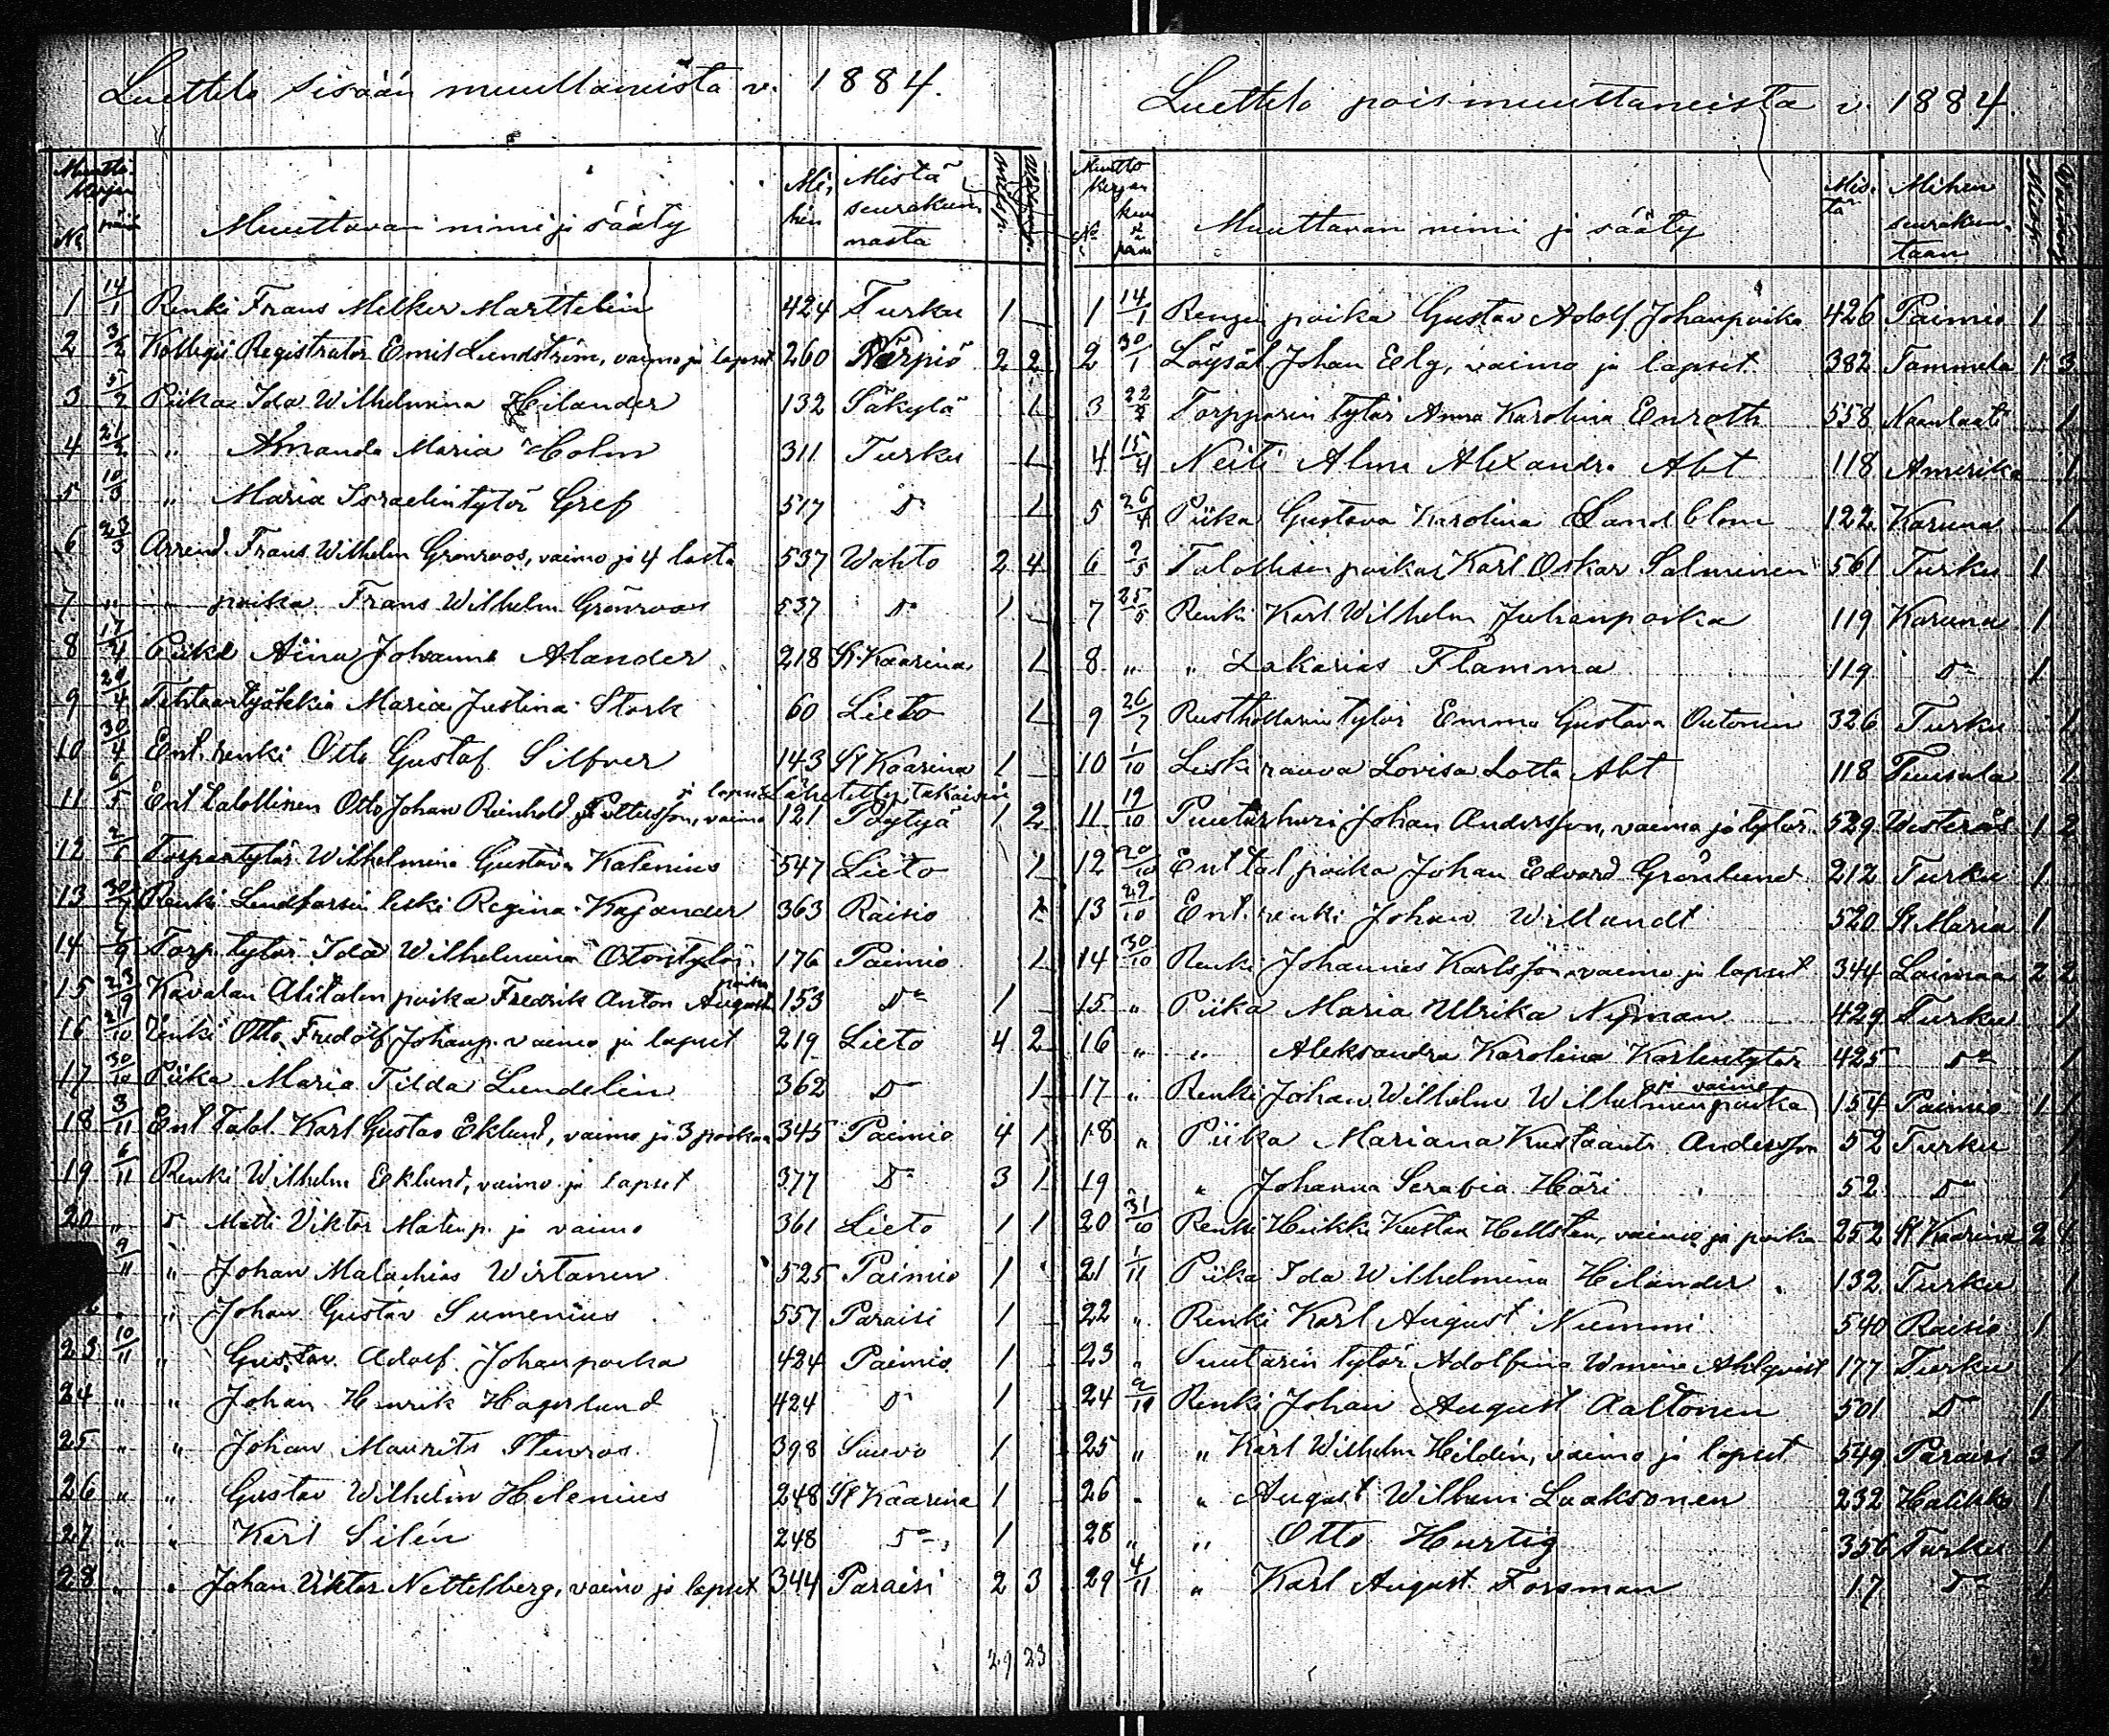 Luettelo sisään muuttaneista v. 1884.
Muutto-kirjan
Nr
päivä
Muuttavan nimi ja sääty
Mihin
Mistä seurakunnasta
miesp.
vaimonp.
1 14/1 Renki Frans Melker Marttelin 424 Turku 1
2 3/2 Kollegii Registrator Emil Lundström, vaimo ja lapset 260 Närpiö 2 2
3 5/2 Piika Ida Wilhelmina Hilander 132 Säkylä 1
4 21/2 " Amanda Maria Holm 311 Turku 1
5 10/3 " Maria Israelintytör Gref 517 Do 1
6 23/3 Arrend. Frans Wilhelm Grönroos, vaimo ja 4 lasta 537 Wahto 2 4
7 " " poika Frans Wilhelm Grönroos 537 Do 1
8 17/4 Piika Aina Johanna Alander 218 St Kaarina 1
9 29/4 Tehtaantyötekiä Maria Justina Stark 60 Lieto 1
10 30/4 Ent. renki Otto Gustaf Silfver 143 St Kaarina 1
ja lapset Lähetetty takaisin
11 6/5 Ent talollinen Otto Johan Reinhold Pettersson, vaimo 121 Pöytyä 1 2
12 2/6 Torpantytör Wilhelmina Gustava Kalenius 547 Lieto 1
13 Renki Lindforsin leski Regina Kajander 363 Raisio 1
14 Torp. tytör Ida Wilhelmina Otontytör 176 Paimio 1
15 23/9 Kavalan Alitalon poika Fredrik Anton Augustin poika 153 Do 1
16 Renki Otto Fredolf Johanp. vaimo ja lapset 219 Lieto 4 2
17 30/10 Piika Maria Tilda Lundelin 362 Do 1
18 3/11 Ent Talol. Karl Gustav Eklund, vaimo ja 3 poikaa 345 Paimio 4 1
19 6/11 Renki Wilhelm Eklund, vaimo ja lapset 377 Do 3 1
20 " Do Matti Viktor Matinp. ja vaimo 361 Lieto 1 1
9/11 " Johan Malachias Wirtanen 525 Paimio 1
" " Johan Gustav Sumenius 557 Paraisi 1
23 10/11 " Gustav Adolf Johanpoika 424 Paimio 1
24 " " Johan Henrik Hagerlund 424 Do 1
25 " " Johan Maurits Stenroos 398 Sauvo 1
26 " " Gustav Wilhelm Helenius 248 St Kaarina 1
27 " " Karl Silén 248 Do 1
28 " " Johan Viktor Nettelberg, vaimo ja lapset 344 Paraisi 2 3
29 23
Luettelo poismuuttaneista v. 1884.
Muutto kirjan
No
kuu ja päivä
Muuttavan nimi ja sääty
Mistä
Mihin seurakuntaan
Miesp.
Vaimonp.
1 14/1 Rengin poika Gustav Adolf Johanpoika 426 Paimio 1
2 30/1 Löysäl. Johan Elg, vaimo ja lapset 382 Tammela 1 3
3 Torpparin tytör Anna Karolina Enroth 558 Naantali 1
4 15/4 Neiti Alma Alexandra Alt 118 Amerika 1
5 26/4 Piika Gustava Karolina Sandblom 122 Karuna 1
6 2/5 Talollisen poika Karl Oskar Salminen 561 Turku 1
7 25/5 Renki Karl Wilhelm Juhanpoika 119 Karuna 1
8 " " Zakarias Flamma 119 Do 1
9 26/7 Rusthollarin tytör Emma Gustava Outonen 326 Turku 1
10 1/10 Leski rouva Lovisa Lotta Alt 118 Tuusula 1
11 19/10 Puutarhuri Johan Andersson, vaimo ja tytör 529 Westerås 1 2
12 20/10 Ent tal poika Johan Edvard Grönlund 212 Turku 1
13 29/10 Ent. renki Johan Willandt 520 St Maria 1
14 30/10 Renki Johannes Karlsson vaimo ja lapset 344 Loimaa 2 2
15 " Piika Maria Ulrika Nyman 429 Turku 1
16 " " Aleksandra Karolina Karlintytär 425 Do 1
17 " Renki Johan Wilhelm Wilhelminpoika ja vaimo 154 Paimio 1 1
18 " Piika Mariana Kustaanti Andersson 52 Turku 1
19 " Johanna Serafia Häri 52 Do 1
20 31/10 Renki Heikki Kustaa Hellsten, vaimo ja poika 252 St Kaarina 2 1
21 1/11 Piika Ida Wilhelmina Hilander 132 Turku 1
22 " Renki Karl August Nummi 540 Raisio 1
23 " Suutarin tytör Adolfina Wmina Ahlqvist 177 Turku 1
24 Renki Johan August Aaltonen 501 Do 1
25 " " Karl Wilhelm Hildén, vaimo ja lapset 549 Paraisi 3 1
26 " " August Wilhem Laaksonen 232 Halikko 1
28 " " Otto Hurtig 356 Turku 1
29 4/11 " Karl August Forsman 17 Do 1